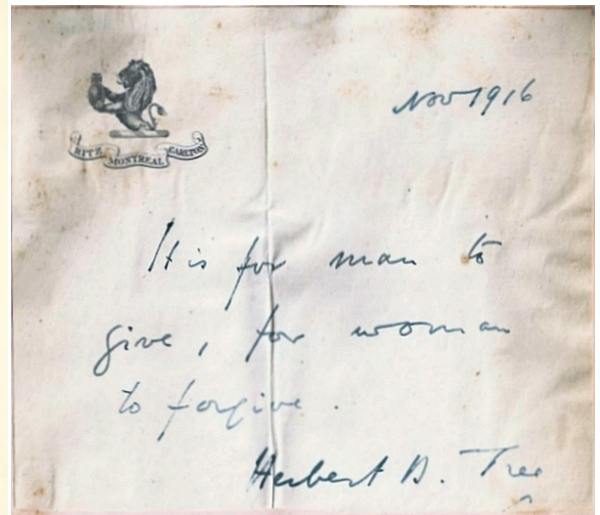 Nov 1916
RITZ MONTREAL CARLTON
It is for man to
give, for woman
to forgive.
Herbert B. Tree